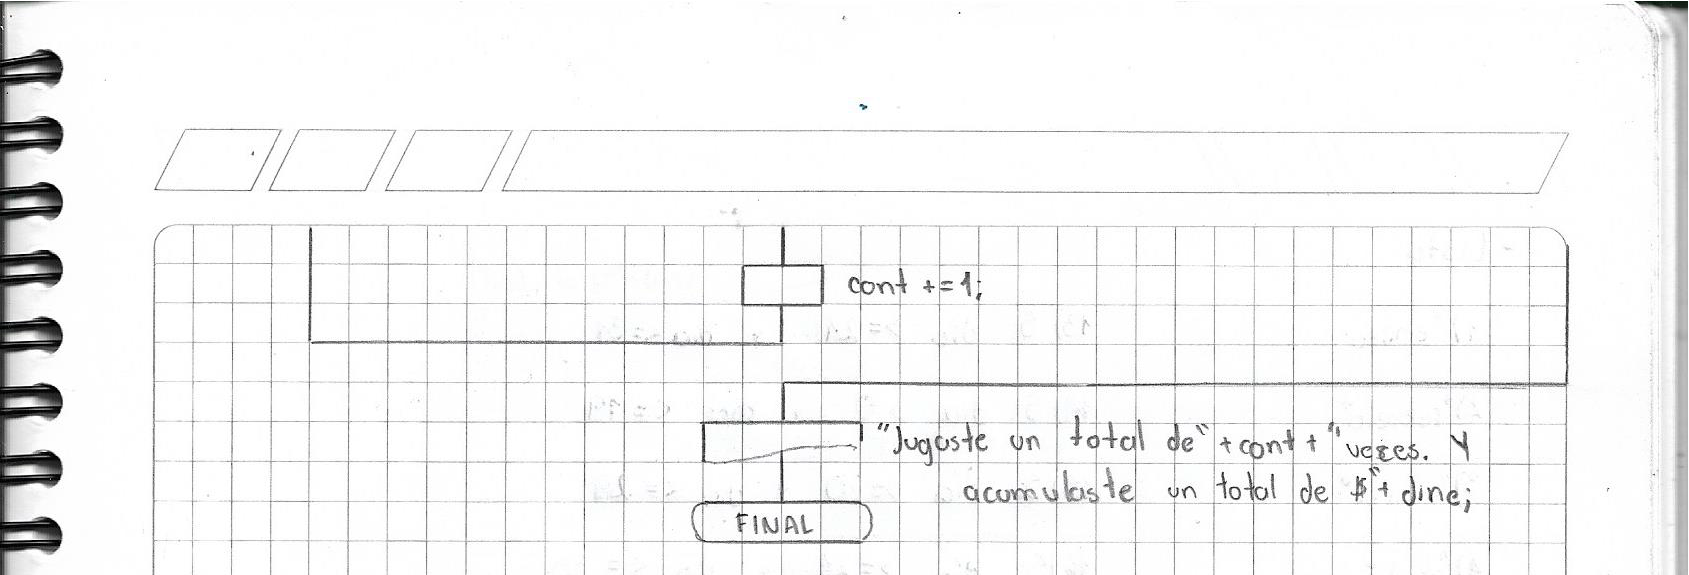 cont += 1;
"Jugaste un total de" + cont + "veces. Y
acumulaste un total de $" + dine;
FINAL